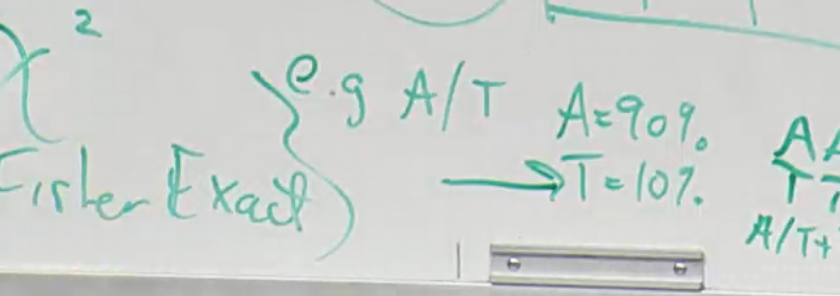 χ²
Fisher Exact
e.g A/T
A=90%
T=10%
AA
TT
A/T+